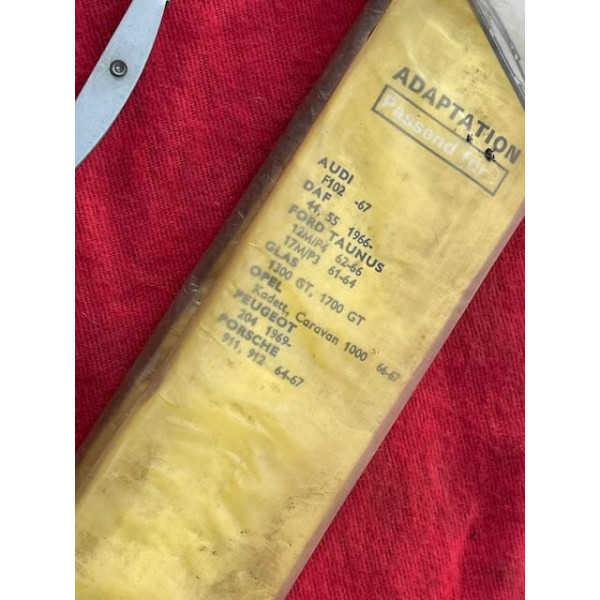 ADAPTATION
Passend für
AUDI
F102 -67
DAF
44, 55 1966-
FORD TAUNUS
12M/P4 62-66
17M/P3 61-64
GLAS
1300 GT, 1700 GT
OPEL
Kadett, Caravan 1000 66-67
PEUGEOT
204 1969-
PORSCHE
911, 912 64-67